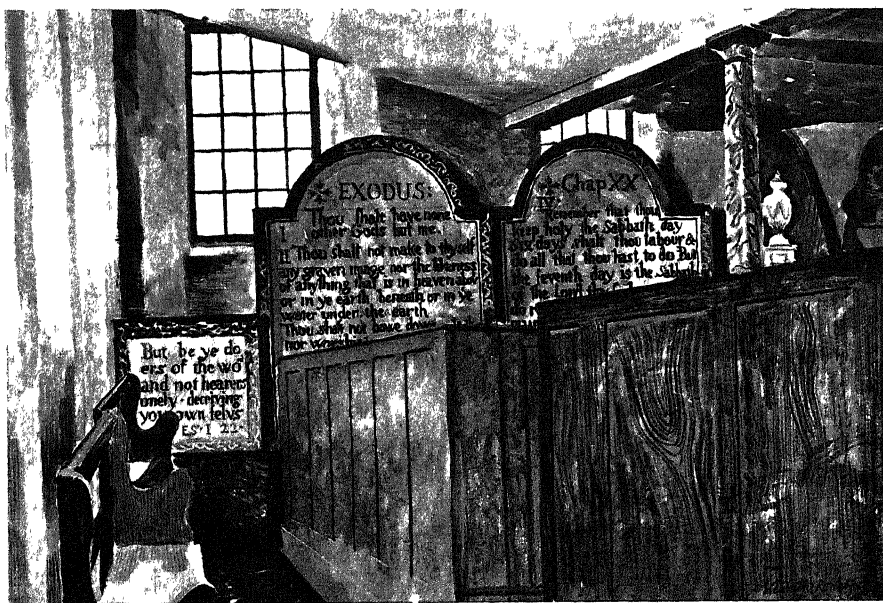 EXODUS:
I Thou shalt have none
other Gods but me.
II Thou shalt not make to thyself
any graven image nor the likeness
of anything that is in heaven above
or in ye earth beneath or in ye
water under the earth
Thou shalt not bow down
nor worship
Chap XX
IV Remember that thou
keep holy the Sabbath day
six days shalt thou labour &
do all that thou hast to do But
the seventh day is the Sabbath
But be ye do
ers of the wo
and not hearers
onely deceiving
your own selvs
ES · I 22